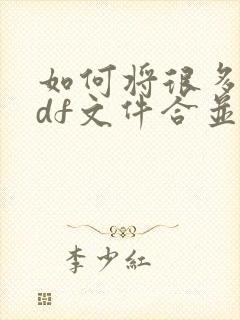 如何将很多
df文件合并
李少红